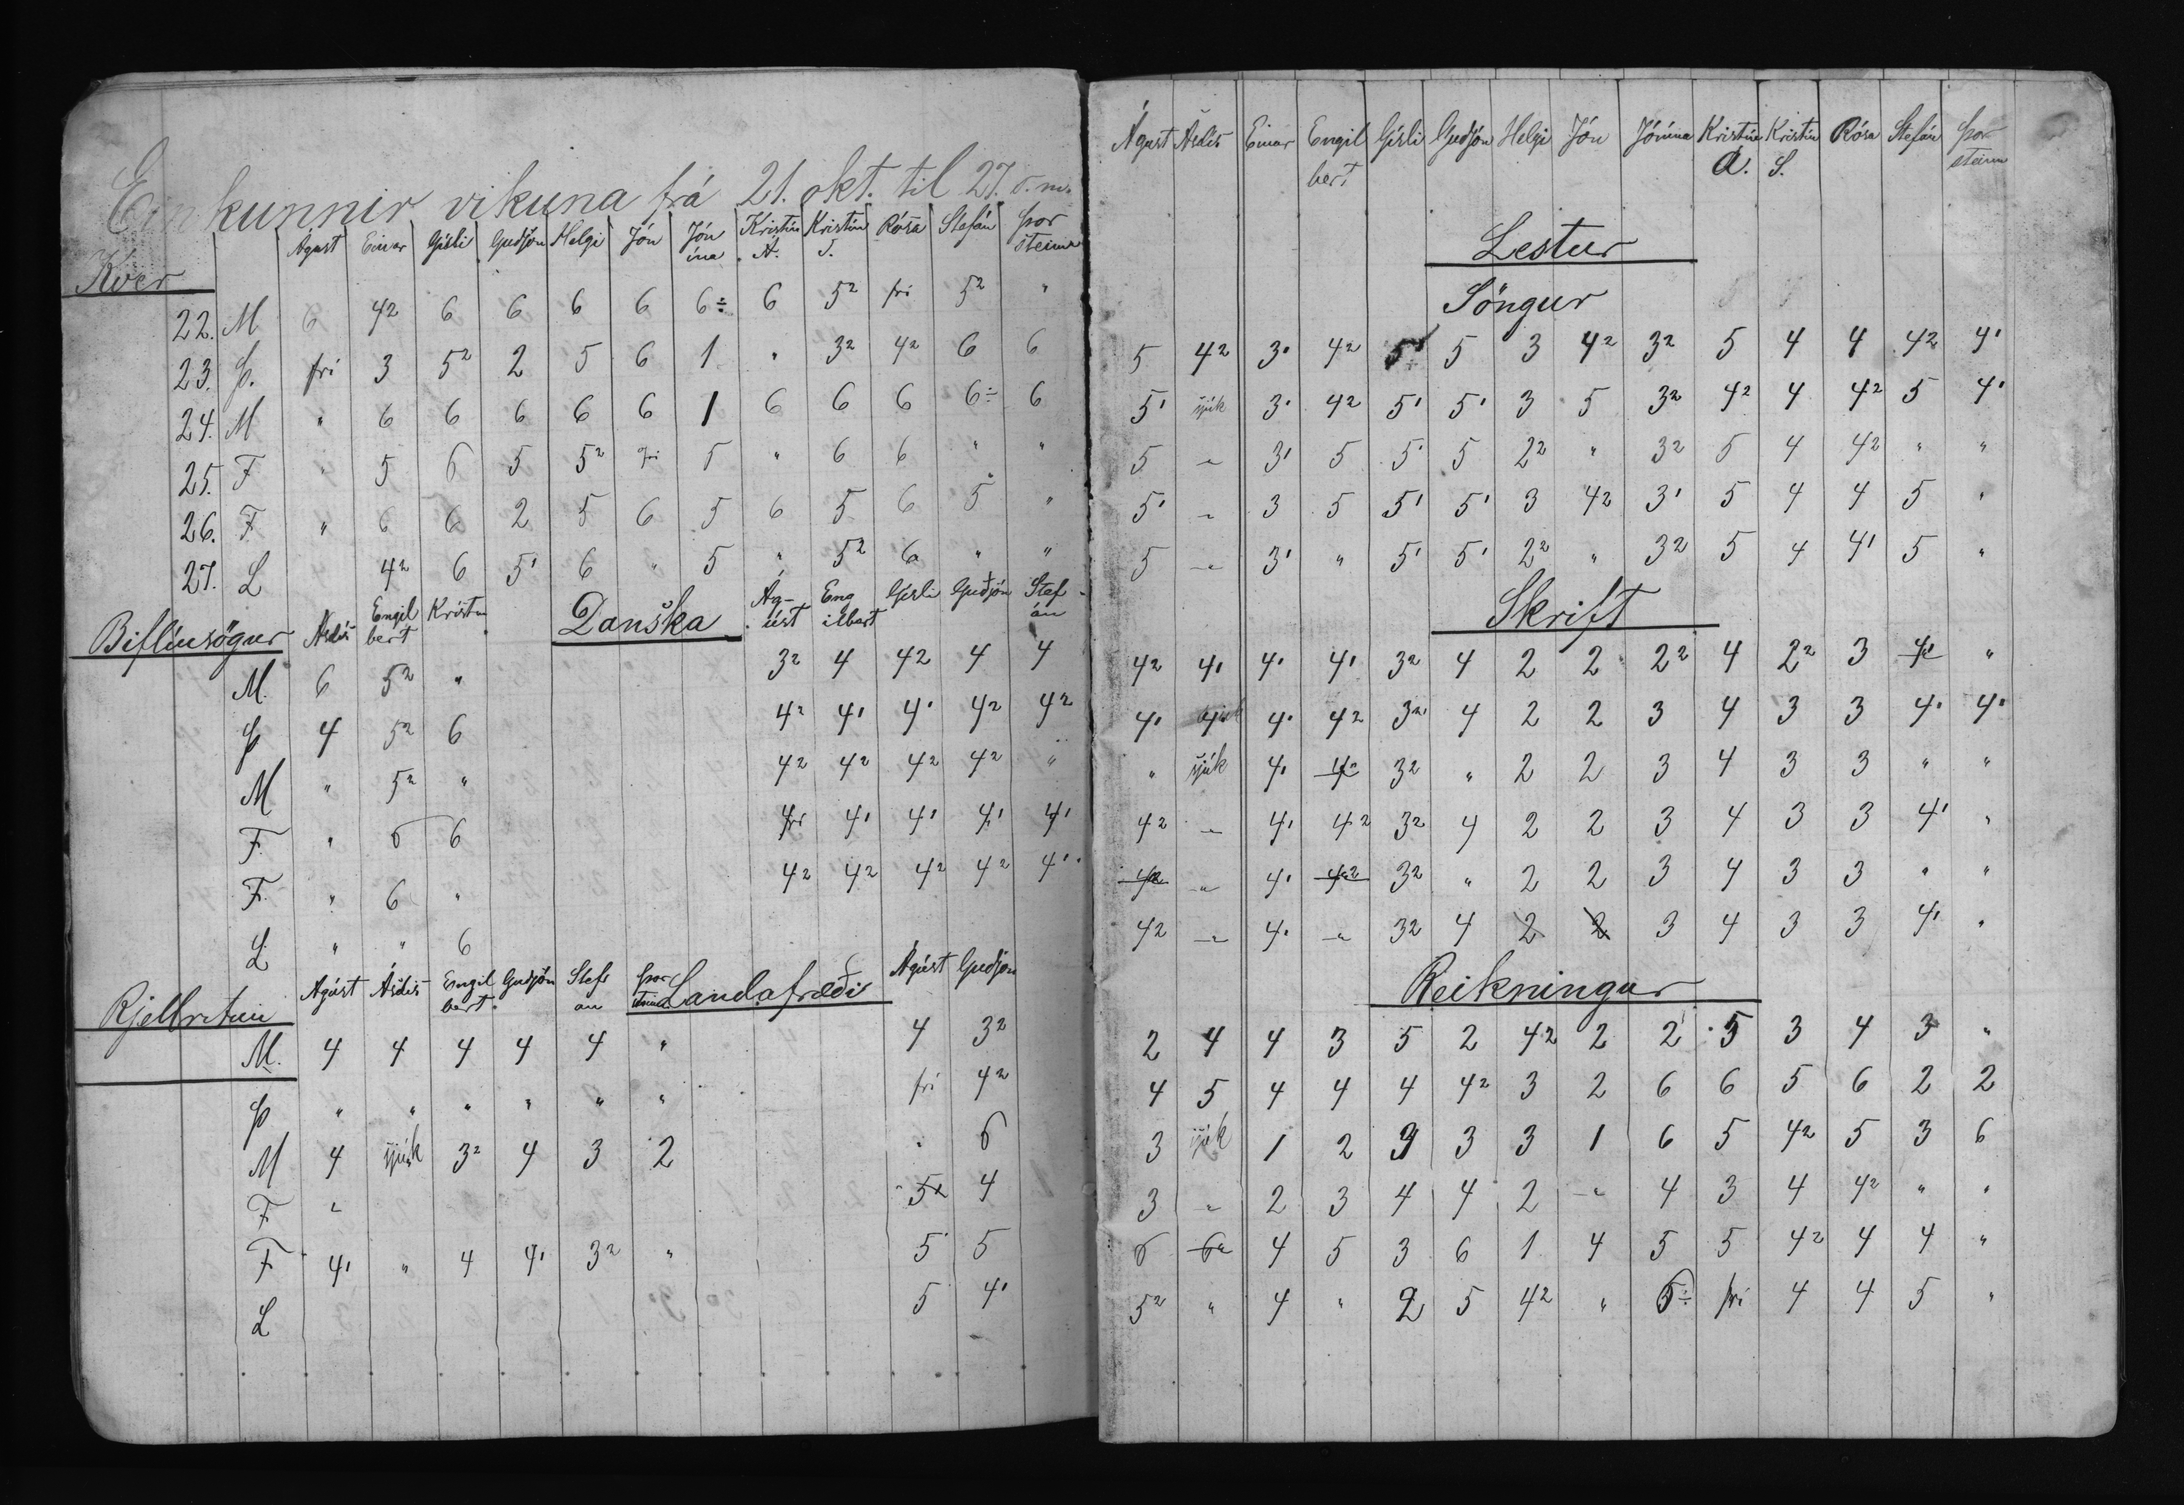 Einkunnir vikuna frá 21. okt. til 27. s.m.
Ágúst Einar Gísli Guðjón Helgi Jón Jónína Kristín Á. Kristín S. Rósa Stefán Þorsteinn
Kver
22. M 6 4² 6 6 6 6 6÷ 6 5² frí 5² "
23. Þ. frí 3 5² 2 5 6 1 " 3² 4² 6 6
24. M " 6 6 6 6 6 1 6 6 6 6÷ 6
25. F " 5 6 5 5² frí 5 " 6 6 " "
26. F " 6 6 2 5 6 5 6 5 6 5 "
27. L 4² 6 5' 6 " 5 " 5² 6 " "
Biflíusögur Ásdís Engilbert Kristín
M. 6 5² "
Þ 4 5² 6
M " 5² "
F " 6 6
F " 6 "
L " " 6
Danska Ágúst Engilbert Gísli Guðjón Stefán
3² 4 4² 4 4
4² 4' 4' 4² 4²
4² 4² 4² 4² "
frí 4' 4' 4' 4'
4² 4² 4² 4² 4'
Rjettritun Ágúst Ásdís Engilbert Guðjón Stefán Þorsteinn
M. 4 4 4 4 4 "
Þ " " " " " "
M 4 sjúk 3² 4 3 2
F "
F 4' " 4 4' 3² "
L
Landafræði Ágúst Guðjón
4 3²
frí 4²
" 6
5² 4
5 5
5 4'
Ágúst Ásdís Einar Engilbert Gísli Guðjón Helgi Jón Jónína Kristín Á. Kristín S. Rósa Stefán Þorsteinn
Lestur
Söngur
5 4² 3' 4² 5' 5 3 4² 3² 5 4 4 4² 4'
5' sjúk 3' 4² 5' 5' 3 5 3² 4² 4 4² 5 4'
5 " 3' 5 5' 5 2² " 3² 5 4 4² " "
5' " 3 5 5' 5' 3 4² 3' 5 4 4 5 "
5 " 3' " 5' 5' 2² " 3² 5 4 4' 5 "
Skrift
4² 4' 4' 4' 3² 4 2 2 2² 4 2² 3 4' "
4' sjúk 4' 4² 3² 4 2 2 3 4 3 3 4' 4'
" sjúk 4' 4² 3² " 2 2 3 4 3 3 " "
4² " 4' 4² 3² 4 2 2 3 4 3 3 4' "
4² " 4' 4² 3² " 2 2 3 4 3 3 " "
4² " 4' " 3² 4 2 2 3 4 3 3 4' "
Reikningur
2 4 4 3 5 2 4² 2 2 5 3 4 3 "
4 5 4 4 4 4² 3 2 6 6 5 6 2 2
3 sjúk 1 2 3 3 3 1 6 5 4² 5 3 6
3 " 2 3 4 4 2 " 4 3 4 4² " "
6 " 4 5 3 6 1 4 5 5 4² 4 4 "
5² " 4 " 2 5 4² " 6÷ frí 4 4 5 "